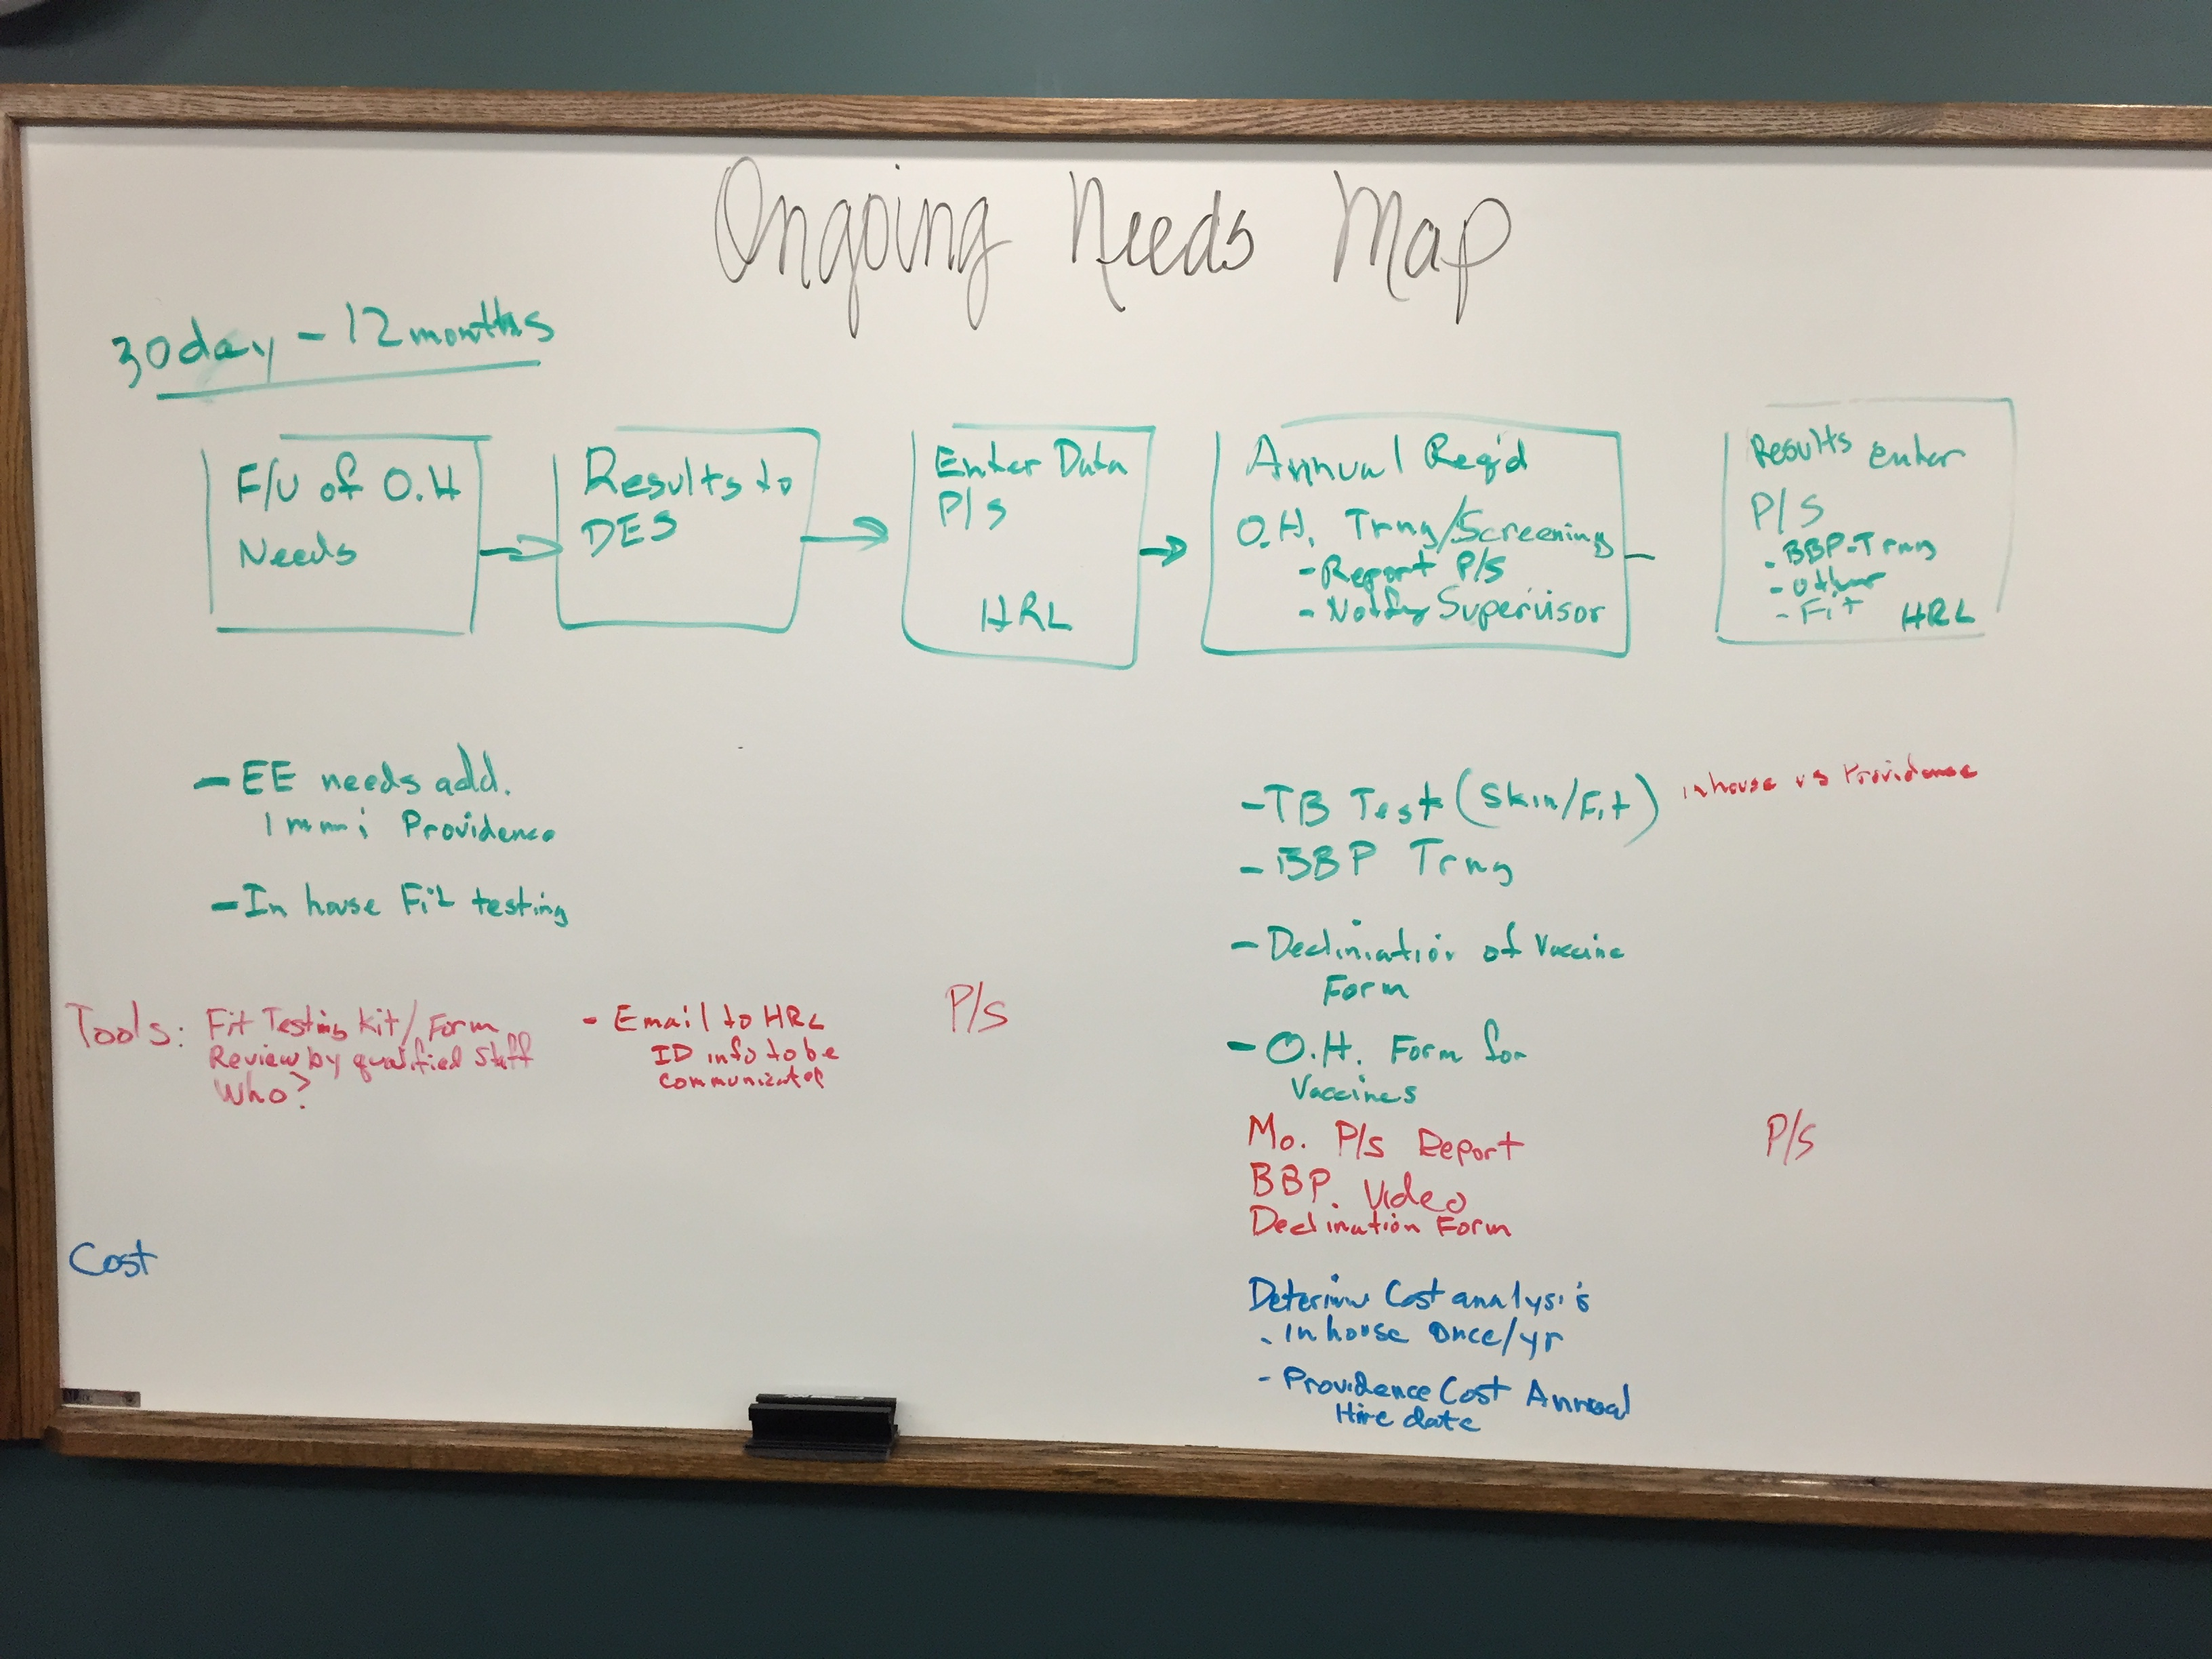 Ongoing Needs Map
30day - 12 months
F/U of O.H
Needs
Results to
DES
Enter Data
P/S
HRL
Annual Req'd
O.H. Trng/Screening
- Report P/S
- Notify Supervisor
Results enter
P/S
- BBP-Trng
- other
- Fit HRL
- EE needs add.
Immi Providence
- In house Fit testing
- TB Test (Skin/Fit) inhouse vs Providence
- BBP Trng
- Decliniation of Vaccine
Form
- O.H. Form for
Vaccines
Tools: Fit Testing Kit/Form
Review by qualified Staff
Who?
- Email to HRL
ID info to be
communicated
P/S
Mo. P/S Report
BBP. Video
Declination Form
P/S
Cost
Cost analysis
- Inhouse Once/yr
- Providence Cost Annual
Hire date